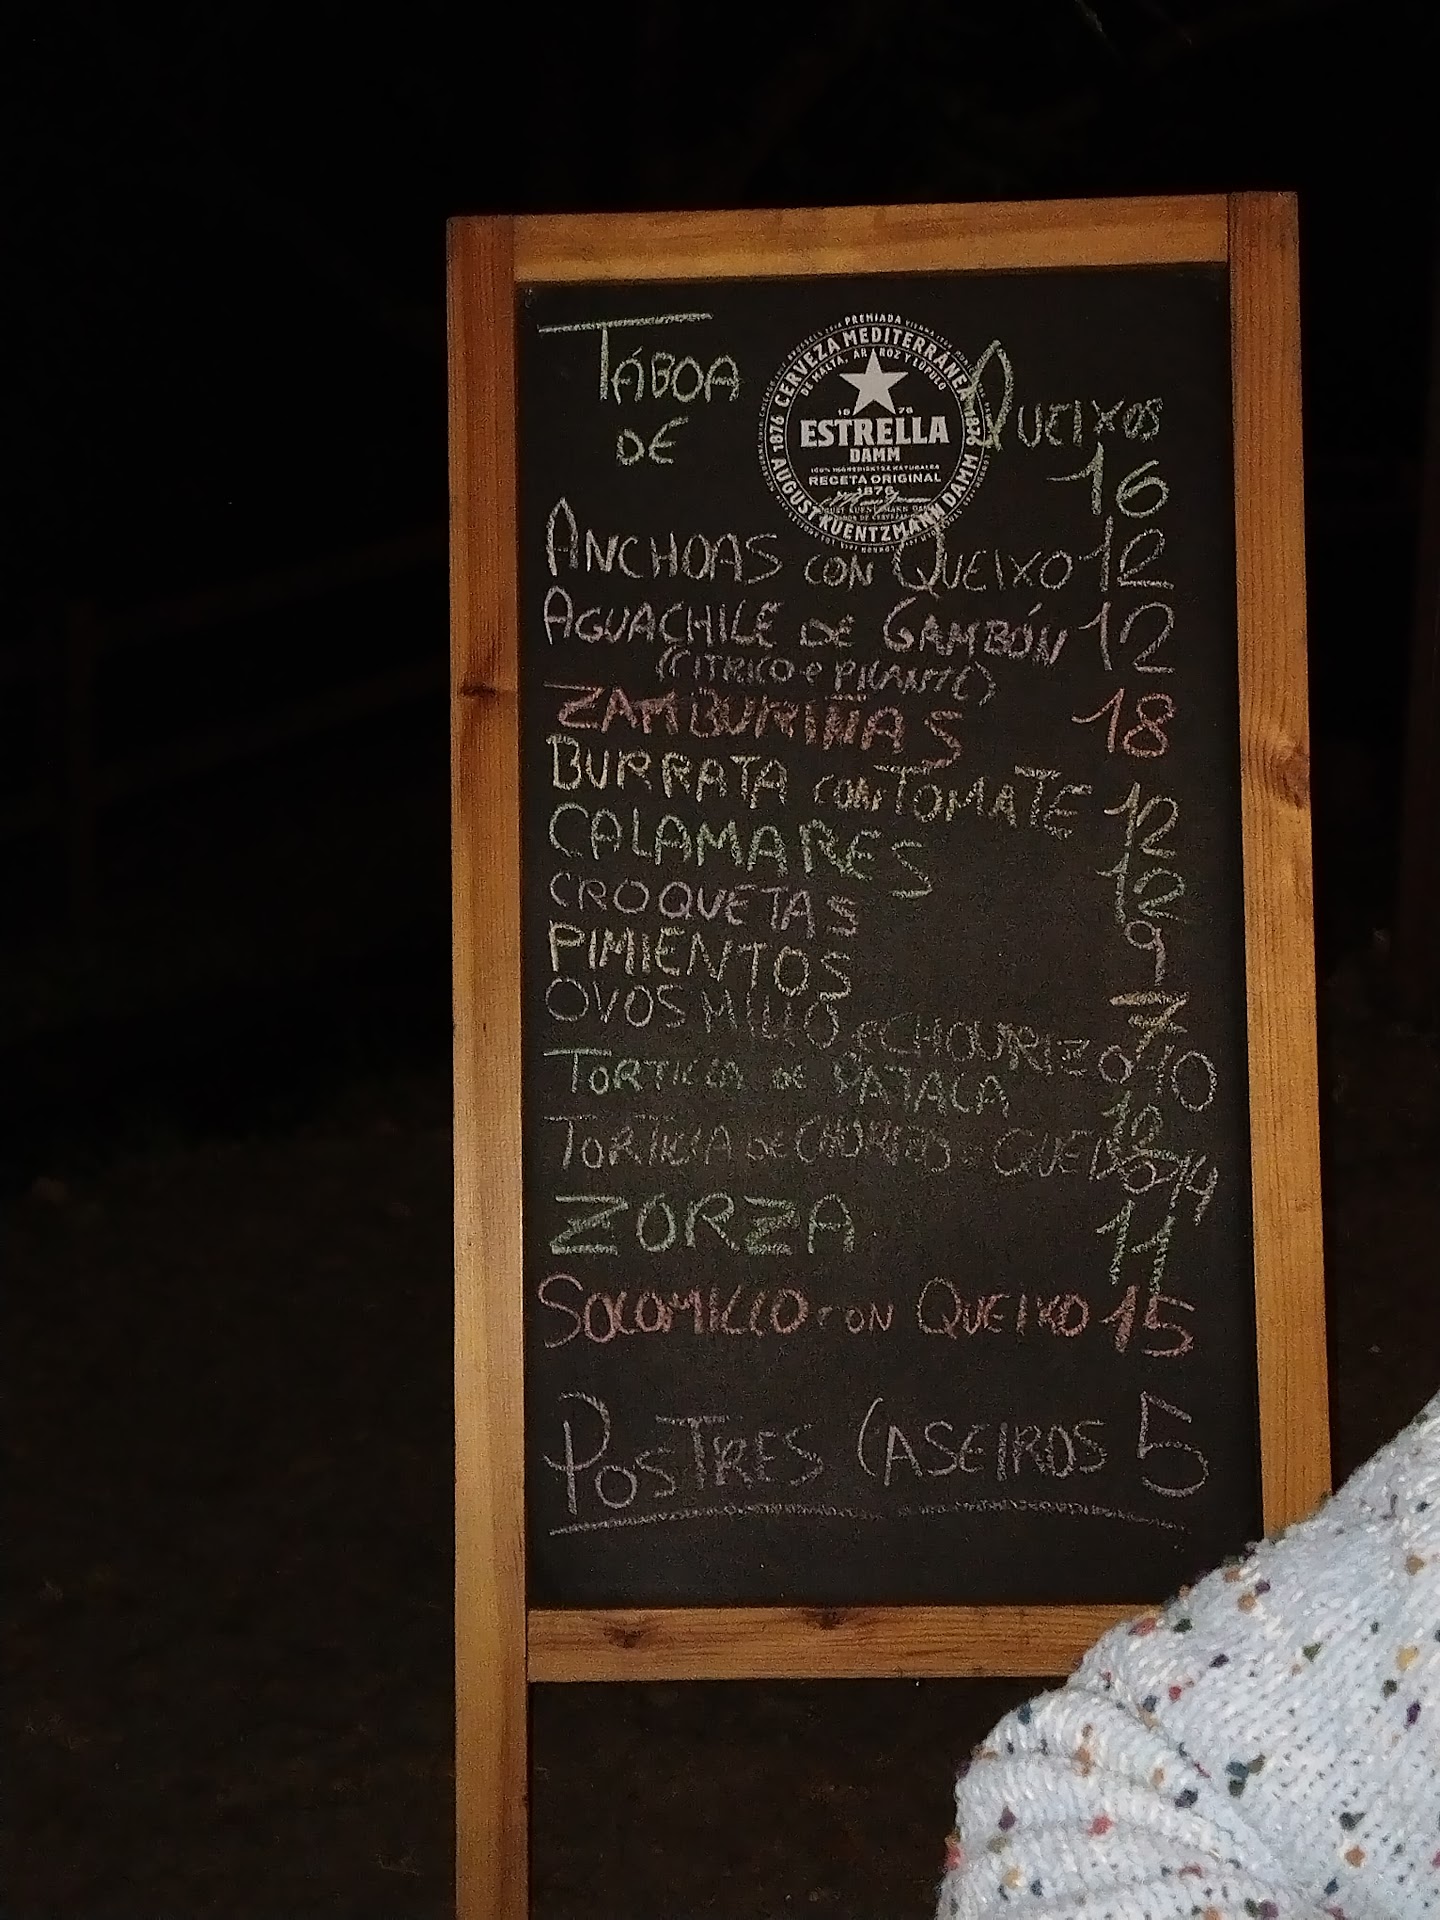 TÁBOA
DE
QUEIXOS
16
CERVEZA MEDITERRÁNEA
DE MALTA, ARROZ Y LÚPULO
1876
1876
18 76
ESTRELLA
DAMM
100% INGREDIENTES NATURALES
RECETA ORIGINAL
1876
AUGUST KUENTZMANN DAMM
ANCHOAS CON QUEIXO 12
AGUACHILE DE GAMBÓN 12
(CITRICO e PICANTE)
ZAMBURIÑAS 18
BURRATA CON TOMATE 12
CALAMARES 12
CROQUETAS 9
PIMIENTOS 7
OVOS MILLO e CHOURIZO 10
TORTILLA DE PATACA 12
TORTILLA DE CHOURIZO e QUEIXO 14
ZORZA 11
SOLOMILLO CON QUEIXO 15
POSTRES CASEIROS 5